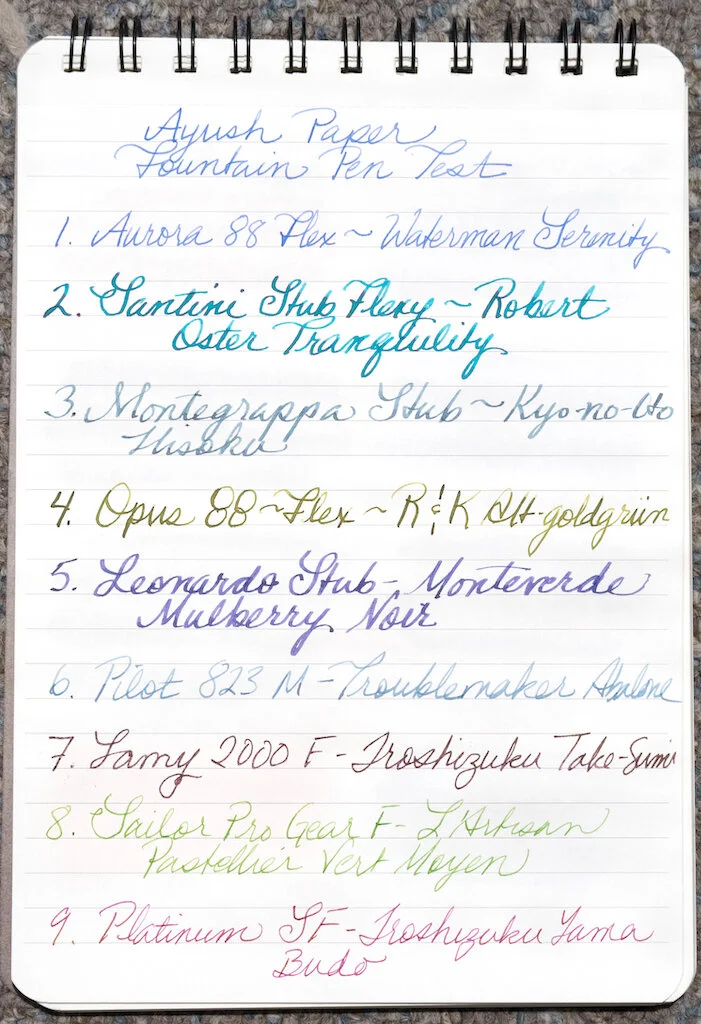 Ayush Paper
Fountain Pen Test
1. Aurora 88 Flex ~ Waterman Serenity
2. Santini Stub Flexy ~ Robert
Oster Tranqiulity
3. Montegrappa Stub ~ Kyo-no-Oto
Hisoku
4. Opus 88 ~ Flex ~ R & K Alt-goldgrün
5. Leonardo Stub - Monteverde
Mulberry Noir
6. Pilot 823 M - Troublemaker Abalone
7. Lamy 2000 F - Iroshizuku Take-Sumi
8. Sailor Pro Gear F - L'Artisan
Pastellier Vert Moyen
9. Platinum SF - Iroshizuku Yama
Budo